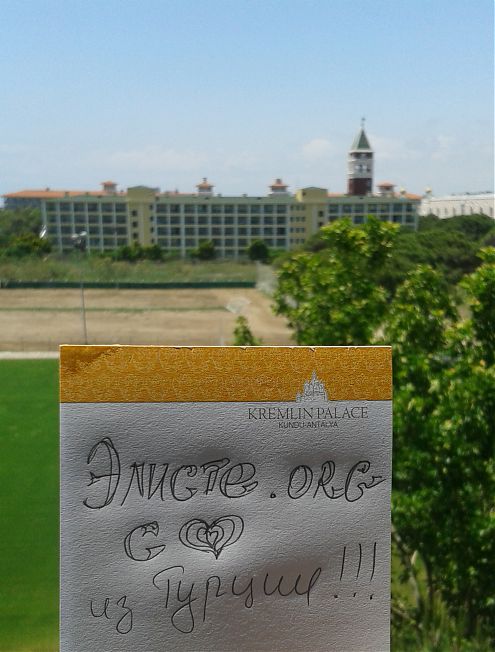 KREMLIN PALACE
KUNDU-ANTALYA
Элисте.ORG
С
из Турции!!!